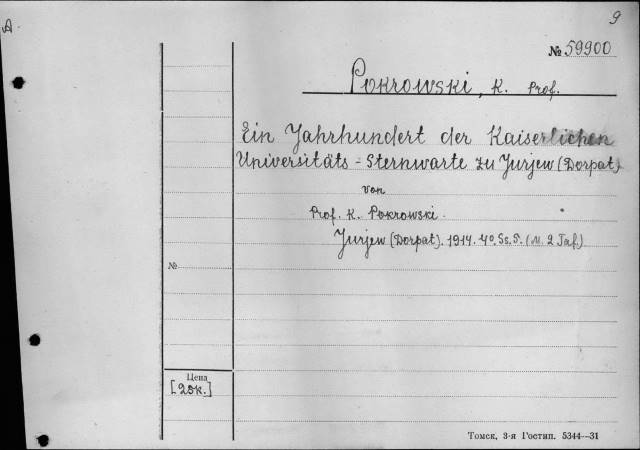 9
A
№ 59900
Pokrowski, K. Prof.
Ein Jahrhundert der Kaiserlichen
Universitäts-Sternwarte zu Jurjew (Dorpat)
von
Prof. K. Pokrowski.
Jurjew (Dorpat). 1914. 4º. (M. 2 Taf.)
№
Цена
[25к.]
Томск, 3-я Гостип. 5344—31